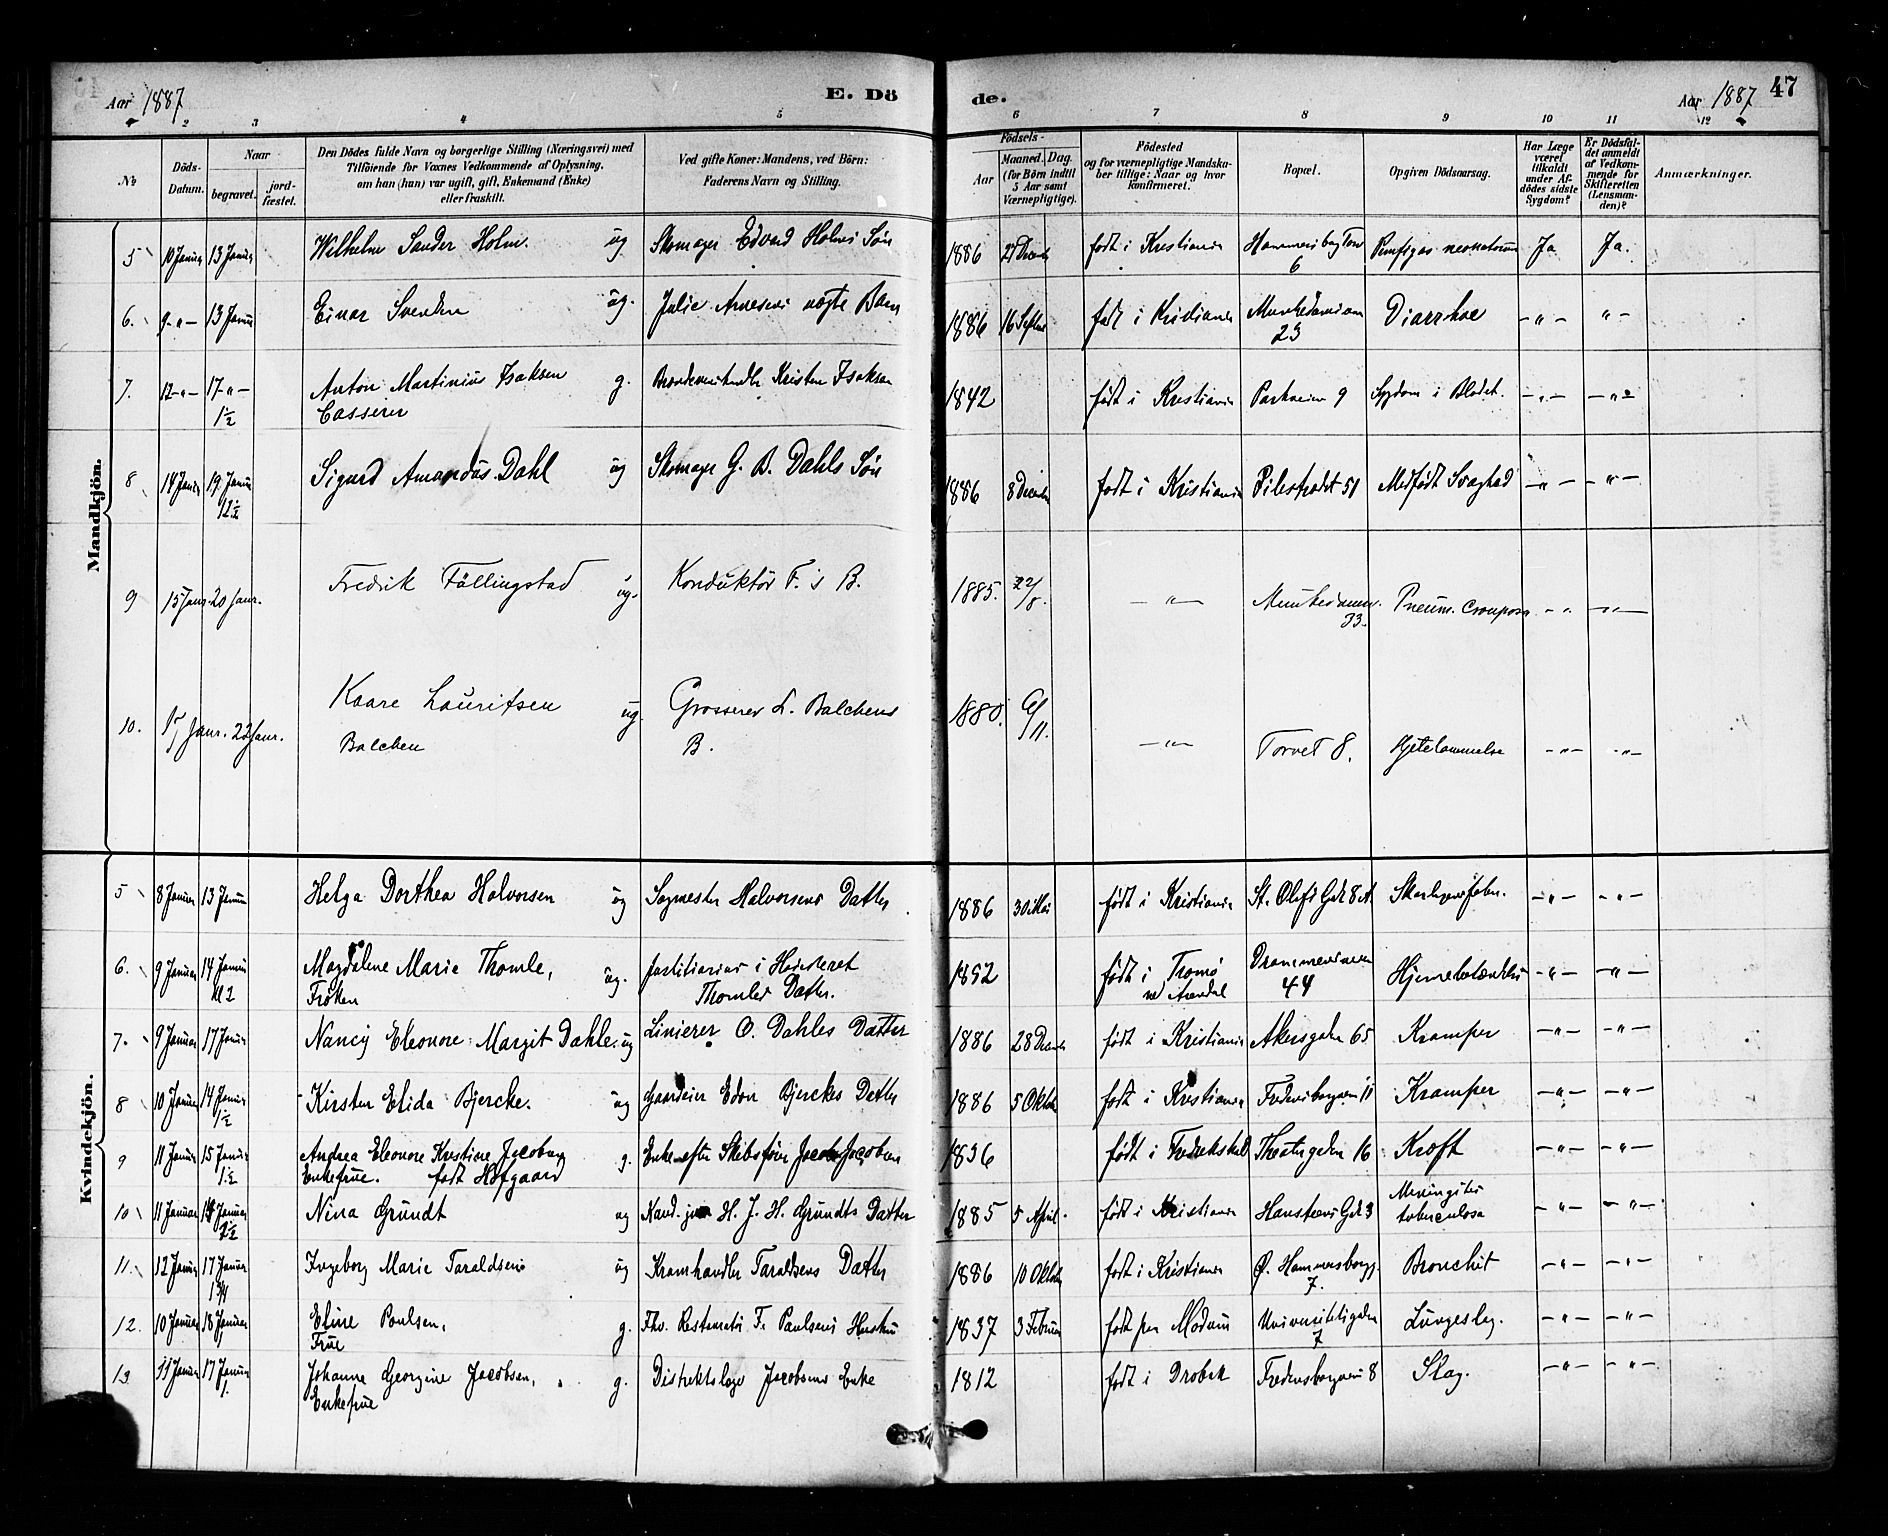 Aar 1887
E. Dö
de.
Aar 1887
47
2 3 4 5 6 7 8 9 10 11 12
No
Döds-Datum.
Naar
begravet.
jord-fæstet.
Den Dödes fulde Navn og borgerlige Stilling (Næringsvei) med
Tilföiende for Voxnes Vedkommende af Oplysning,
om han (hun) var ugift, gift, Enkemand (Enke)
eller fraskilt.
Ved gifte Koner: Mandens, ved Börn:
Faderens Navn og Stilling.
Födsels-
Aar
Maaned. Dag.
(for Börn indtil
5 Aar samt
Værnepligtige).
Födested
og for værnepligtige Mandska-
ber tillige: Naar og hvor
konfirmeret.
Bopæl.
Opgiven Dödsaarsag.
Har Læge
været
tilkaldt
under Af-
dödes sidste
Sygdom?
Er Dödsfal-
det anmeldt
af Vedkom-
mende for
Skifteretten
(Lensman-
den)?
Anmærkninger.
Mandkjön.
5 10 Januar 13 Januar Wilhelm Sander Holm. ug Skomager Edvard Holms Sön 1886 født i Kristiania 6 Pemfigus neonatorum Ja Ja.
6. 9-"- 13 Januar Einar Svendsen ug. Julie Arnesens uægte Barn 1886 16 Septbr født i Kristiania 23 Diarrhoe -"- "-
7. 12-"- 17-"- Anton Martinius Isaksen g. Kristen Isaksen 1842 født i Kristiania Parkveien 9 Sygdom i Blodet. -"- -"-
1½ Casserer
8 14 Januar 19 Januar Sigurd Amandus Dahl ug Skomager G. B. Dahls Sön 1886 8 Decembr født i Kristiania Pilestrædet 51 Medfødt Svaghed -"- -"-
12½
9 15 Janr. 20 Janr. Fredrik Föllingstad ug. Konduktör F.'s B. 1885. 22/8. -"- Munkedamsv. 33. Pneum. crouposa -"- -"-
10. 15 Janr. 22 Janr. Kaare Lauritsen ug. Grosserer L. Balchens 1880. 9/11.
Balchen B. -"- Torvet 8. Hjertelammelse -"- -"-
Kvindekjön.
5 8 Januar 13 Januar Helga Dorthea Halvorsen ug Sagmester Halvorsens Datter 1886 30 Mai født i Kristiania St. Olafs Gade 8 A Skarlagensfeber. -"- -"-
6. 9 Januar 14 Januar Magdalene Marie Thomle, ug. Justitiarius i Höiesteret 1852 født i Tromö Drammensveien Hjernebetændelse -"- -"-
Kl 2 Fröken Thomles Datter. ved Arendal 44
7. 9 Januar 17 Januar Nancy Eleonore Margit Dahle. ug Linierer O. Dahles Datter 1886 28 Decembr født i Kristiania Akersgaden 65 Kramper -"- -"-
8 10 Januar 14 Januar Kirsten Elida Bjercke. ug Gaardeier Edvn Bjerckes Datter 1886 5 Oktober født i Kristiania Fredensborgveien 11 Kramper -"- -"-
1½
9 11 Januar 15 Januar Andrea Eleonore Kristine Jacobsen g. Enke efter Skibsförer Jacob Jacobsen 1836 født i Fredrikshald Theatergaden 16 Kræft -"- -"-
1½ Enkefrue. født Hofgaard
10 11 Januar 14 Januar Nina Grundt ug Kand. jur H. J. H. Grundts Datter 1885 5 April. født i Kristiania Hansteens Gade 3 Meningitis tuberculosa -"- -"-
11. 12 Januar 17 Januar Ingeborg Marie Taraldsen ug Kramhandler Taraldsens Datter 1886 10 Oktober født i Kristiania Ö. Hammersborgg. 7. Bronchit -"- -"-
1¾
12. 10 Januar 18 Januar Eline Poulsen, g. Fhv. Restauratör F. Paulsens Hustru 1837 3 Februar født paa Modum Universitetsgaden 7 Lungeslag. -"- -"-
Frue
13. 11 Januar 17 Januar Johanne Georgine Jacobsen, g. Distriktslæge Jacobsens Enke 1812 født i Dröbak Fredensborgveien 8 Slag. -"- -"-
1. Enkefrue